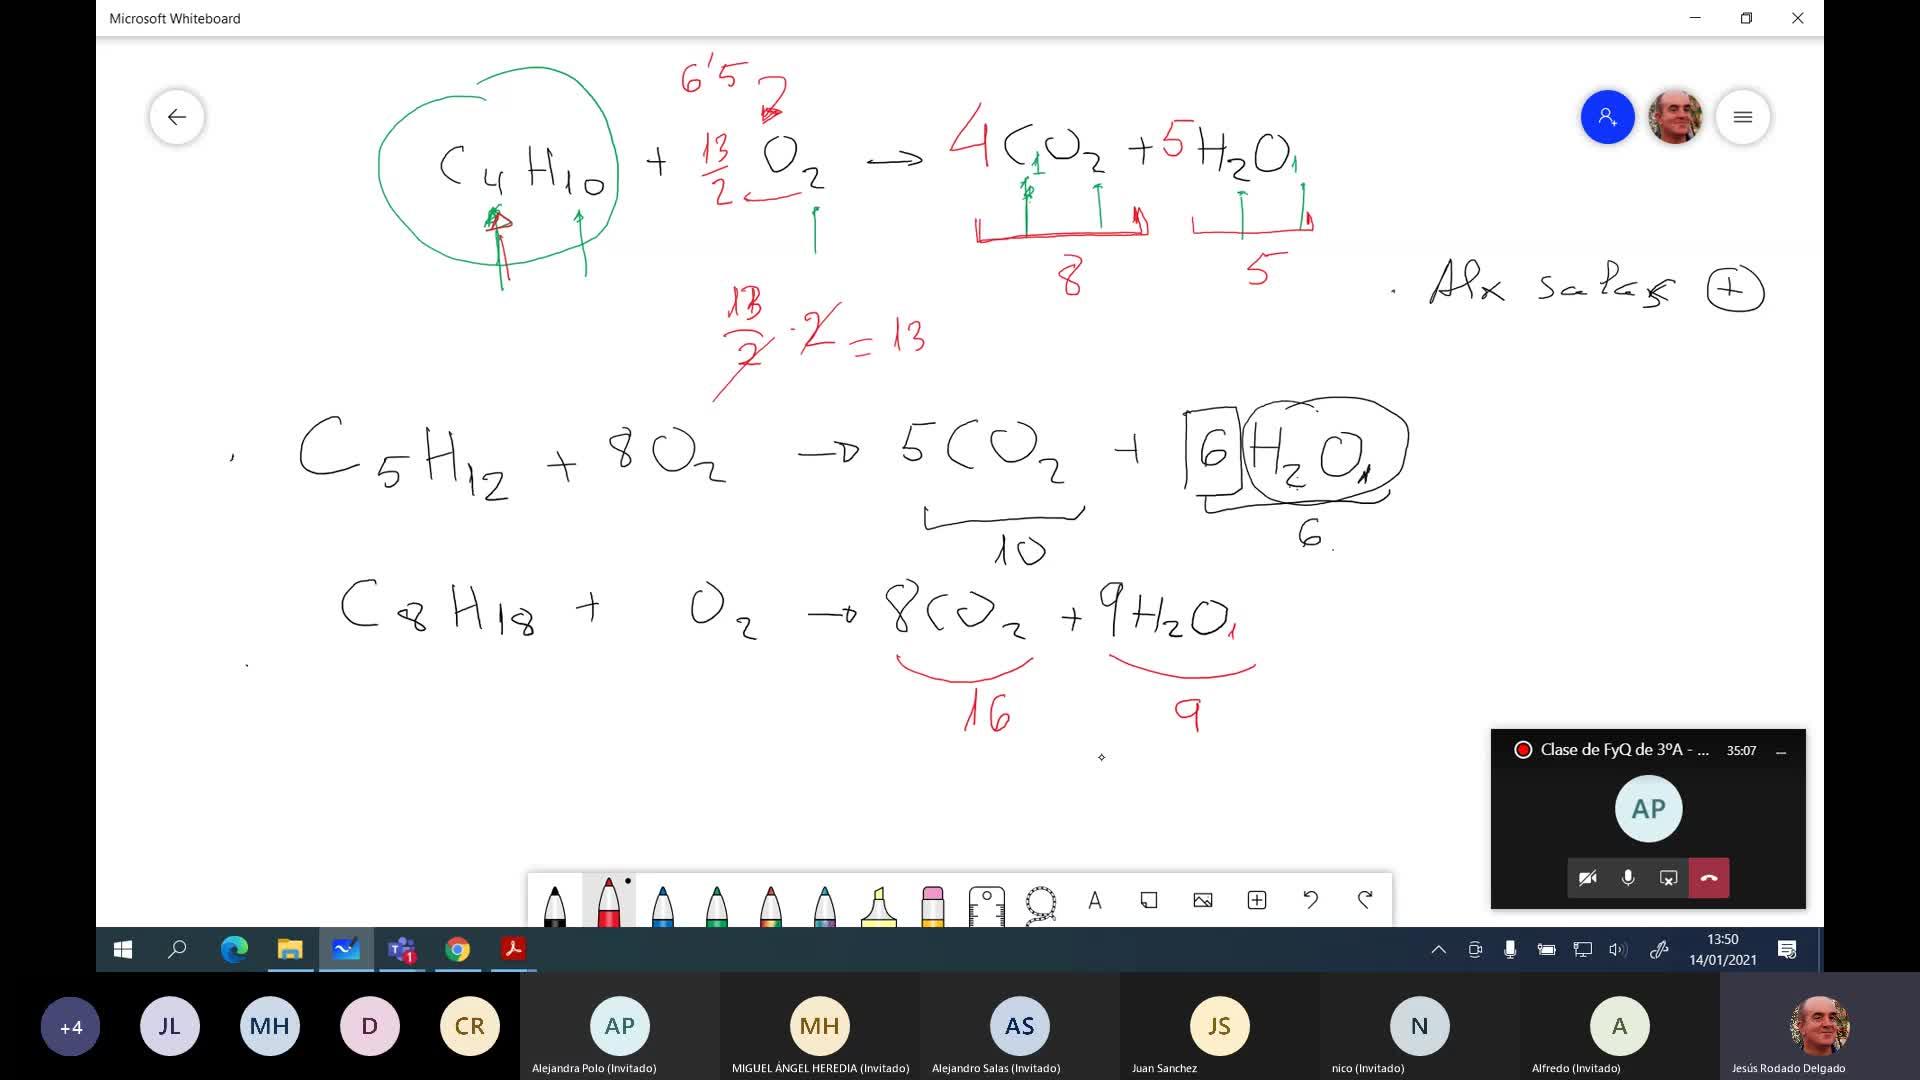 Microsoft Whiteboard
6'5
C4H10 + 13/2 O2 → 4CO2 + 5H2O1
1
8 5
. Alx salas +
13/2 · 2 = 13
. C5H12 + 8O2 → 5CO2 + 6H2O1
10 6.
C8H18 + O2 → 8CO2 + 9H2O1
16 9
Clase de FyQ de 3ºA - ... 35:07
AP
A
T 1
13:50
14/01/2021
+4 JL MH D CR AP MH AS JS N A
Alejandra Polo (Invitado) MIGUEL ÁNGEL HEREDIA (Invitado) Alejandro Salas (Invitado) Juan Sanchez nico (Invitado) Alfredo (Invitado) Jesús Rodado Delgado